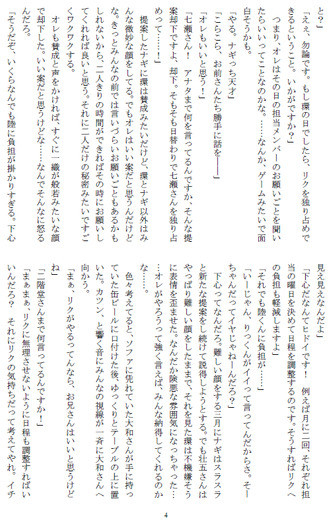 と？」
「ええ、勿論です。もし環の日でしたら、リクを独り占めで
きるということ、いかがですか？」
　つまり、オレはその日の担当メンバーのお願いごとを聞い
たらいいってことなのかな。……なんか、ゲームみたいで面
白そうかも。
「やる。ナギっち天才」
「こらこら、お前さんたち勝手に話を――」
「オレもいいと思う！」
「七瀬さん！　アナタまで何を言ってるんですか、そんな提
案却下ですよ、却下。そもそも日替わりで七瀬さんを独り占
めって……」
　提案したナギに環は賛成みたいだけど、環とナギ以外はみ
んな微妙な顔をしてる。でもオレはいい案だと思うんだけど
な。きっとみんなの前では言いづらいお願いごともあるかも
しれないから、二人きりの時間ができればその時にお願いし
てくれれば良いと思う。それに二人だけの秘密みたいですご
くワクワクする。
　オレも賛成と声をかければ、すぐに一織が般若みたいな顔
で却下した。いい案だと思うけどな……なんでそんなに怒る
んだろう？
「そうだぞ、いくらなんでも陸に負担が掛かりすぎる。下心
見え見えなんだよ」
「下心だなんてヒドイです！　例えば月に一回、それぞれ担
当の曜日を決めて日程を調整するのです。そうすればリクへ
の負担も軽減しますよ」
「それでも陸くんに負担が……」
「いーじゃん、りっくんがイイって言ってんだからさ。そー
ちゃんだってイヤじゃねーんだろ？」
　下心ってなんだろ。難しい顔をする三月にナギはスラスラ
と新たな提案をし続けて説得しようとする。でも壮五さんは
やっぱり難しい顔をしたままで、それを見た環は不機嫌そう
に表情を歪ませた。なんだか険悪な雰囲気になっちゃった…
…オレがやろうって強く言えば、みんな納得してくれるのか
な……。
　色々考えてると、ソファに凭れていた大和さんが手に持っ
ていた缶ビールに口付けた後、ゆっくりとテーブルの上に置
いた。カツン、と響く音にみんなの視線が一斉に大和さんへ
向かう。
「まぁ、リクがやるってんなら、お兄さんはいいと思うけど
ね」
「二階堂さんまで何言ってるんですか！」
「まぁまぁ。リクに無理させないように日程も調整すればい
いんだろ？　それにリクの気持ちだって考えてやれ、イチ
4